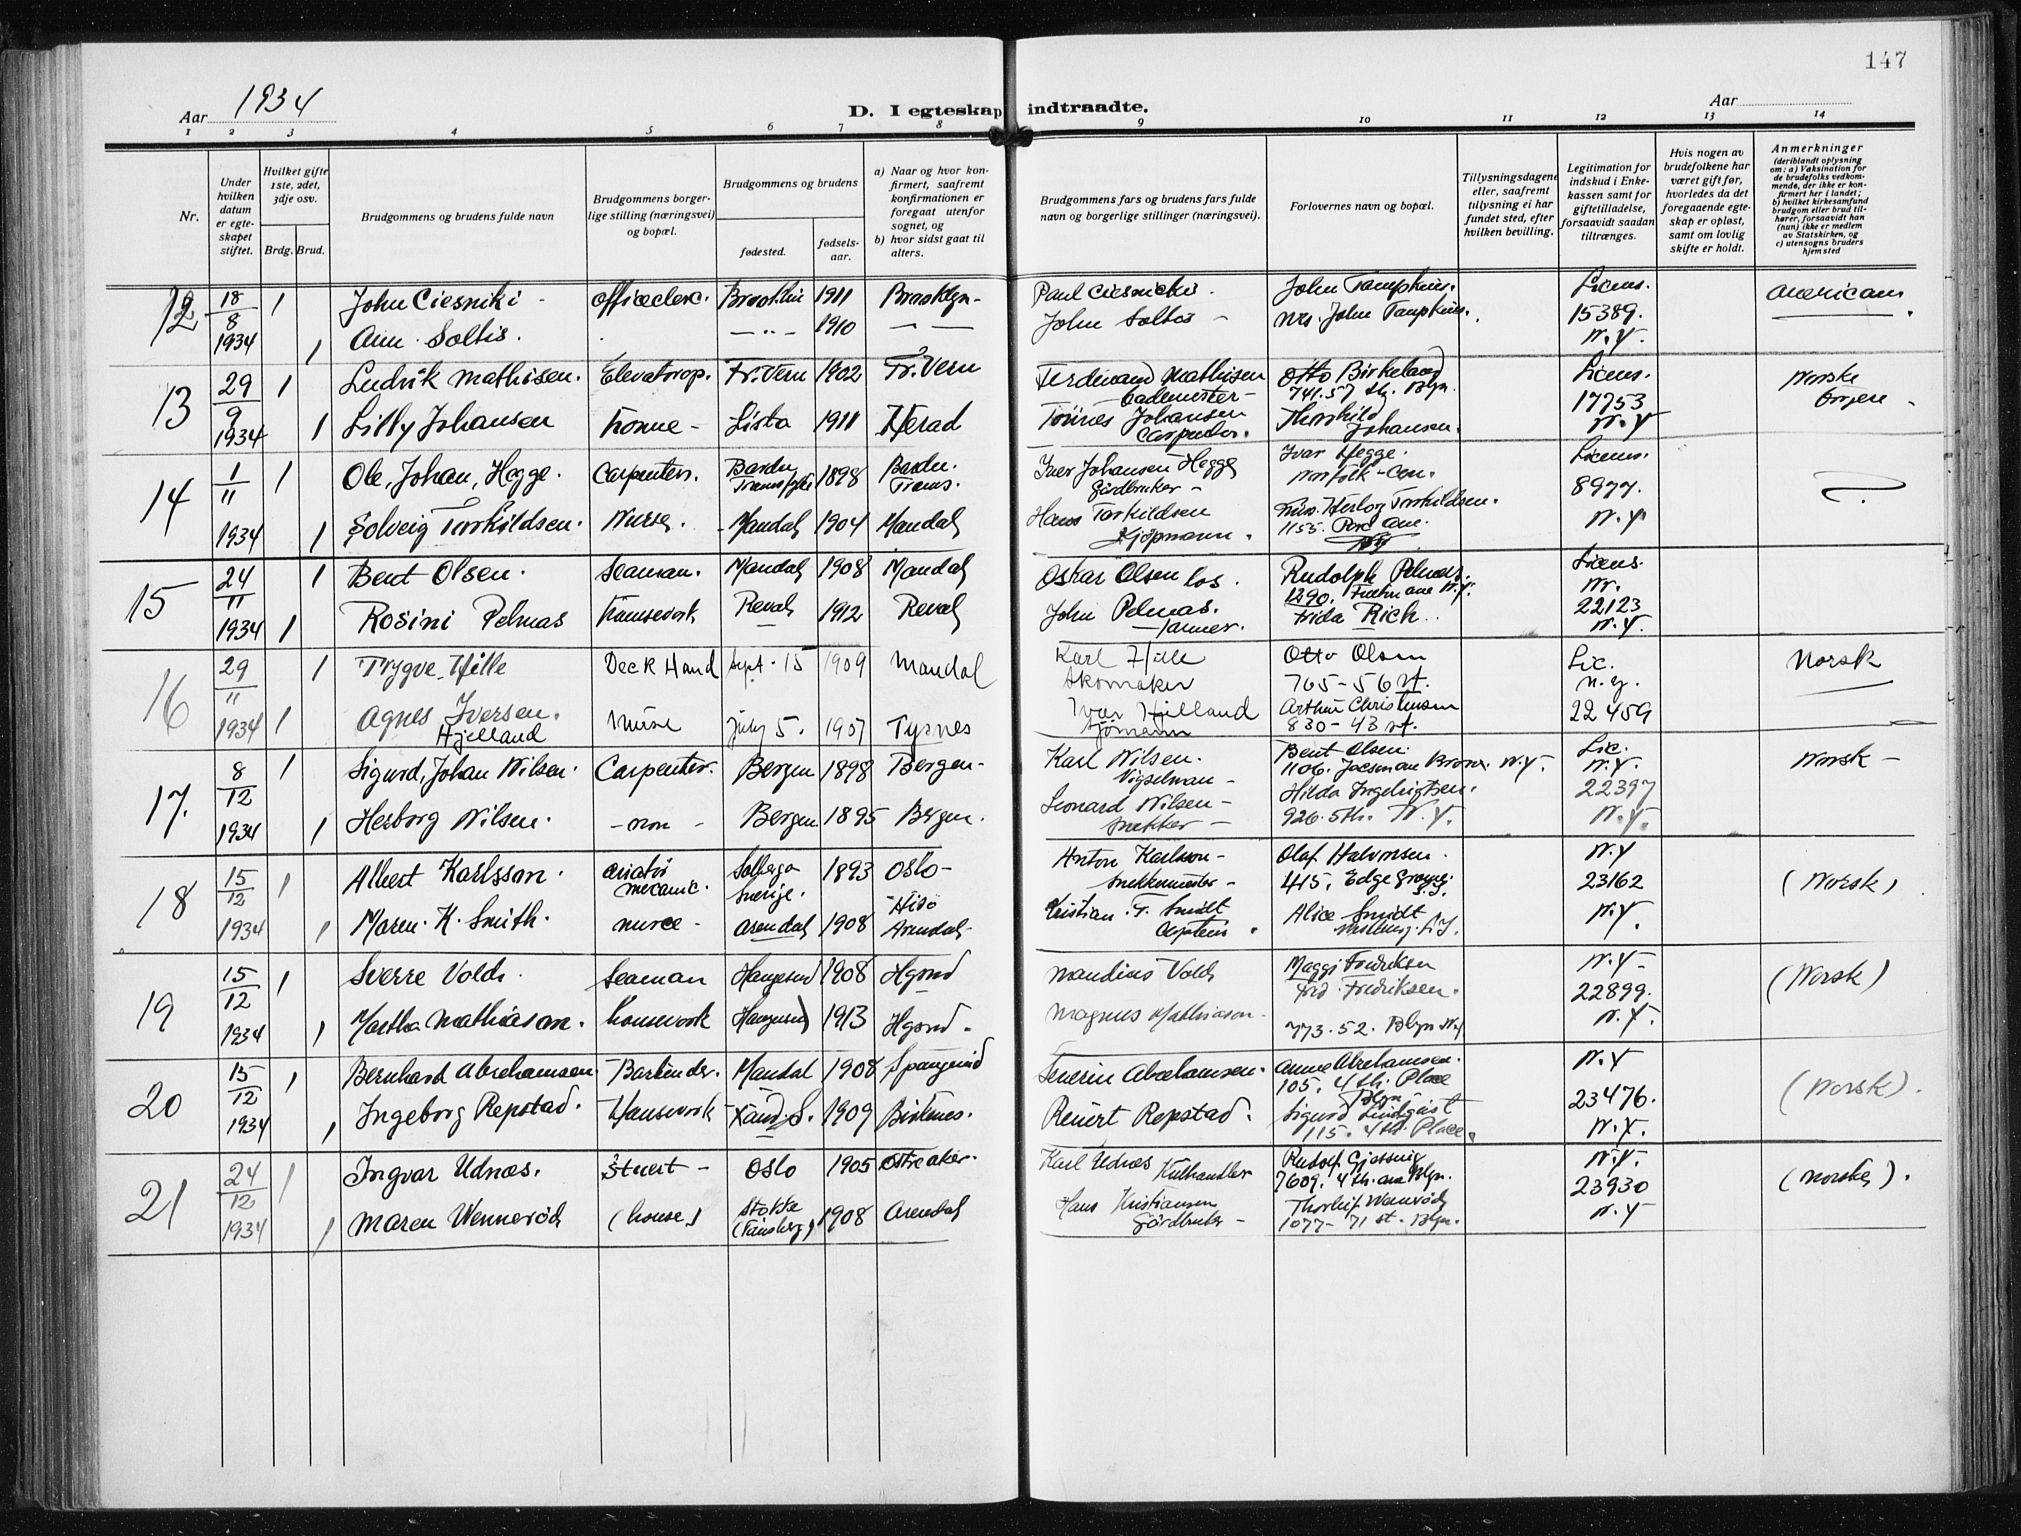 147
Aar 1934
D. I egteskap indtraadte.
Aar
1 2 3 4 5 6 7 8 9 10 11 12 13 14
Nr.
Under hvilken datum er egteskapet stiftet.
Hvilket gifte 1ste, 2det, 3dje osv.
Brdg. Brud.
Brudgommens og brudens fulde navn
Brudgommens borgerlige stilling (næringsvei) og bopæl.
Brudgommens og brudens
fødested.
fødselsaar.
a) Naar og hvor konfirmert, saafremt konfirmationen er foregaat utenfor sognet, og
b) hvor sidst gaat til alters.
Brudgommens fars og brudens fars fulde navn og borgerlige stillinger (næringsvei).
Forlovernes navn og bopæl.
Tillysningsdagene eller, saafremt tillysning ei har fundet sted, efter hvilken bevilling.
Legitimation for indskud i Enkekassen samt for giftetilladelse, forsaavidt saadan tiltrænges.
Hvis nogen av brudefolkene har været gift før, hvorledes da det foregaaende egteskap er opløst, samt om lovlig skifte er holdt.
Anmerkninger
(deriblandt oplysning om: a) Vaksination for de brudefolks vedkommende, der ikke er konfirmert her i landet; b) hvilket kirkesamfund brudgom eller brud tilhører, forsaavidt han (hun) ikke er medlem av Statskirken, og c) utensogns bruders hjemsted
12 18/8 1934 1 John Ciesniki officeclerc. 1911 Brooklyn Paul John Tampkins. Licens. american
1 Ann Soltis. 1910 John Soltis Mrs. John Tampkins. 15389. N.Y.
13 29/9 1934 1 Ludvik Mathisen. Elevatorop. Tr. Vern 1902 Tr. Vern Ferdinand Mathisen Otto Birkeland 741. 57 st. Blyn. Licens. Norske
1 Lilly Johansen Lista 1911 Herad Tönnes Johansen Carpenter. Thorhild Johansen. 17753 N.Y
14 1/11 1934 1 Ole, Johan, Hegge. Carpenter. Bardu 1898 Bardu. Troms. Iver Johansen Hegge Gårdbruker Ivar Hegge. Norfolk - Licens. 8977.
1 Solveig Torkildsen. Nurse. Mandal 1904 Mandal Hans Torkildsen Kjöpmann. Torkildsen. 1155. N.Y.
15 24/11 1934 1 Bent Olsen. Seaman. Mandal 1908 Mandal Oskar Olsen los. Rudolph Pelmas. 1290. N.Y. Licens. nr.
1 Rosini Pelmas Housework Reval 1912 Reval John Pelmas. Frida Rich. 22123 N.Y.
16 29/11 1934 1 Trygve Hille Deck Hand Sept. 15 1909 Mandal Karl Hille Skomaker Otto Olsen 765 - 56 st. Lic. n.y. Norsk
1 Agnes Iversen. Hjelland Nurse July 5. 1907 Tysnes Ivar Hjelland Sjömann Arthur Christensen 830 - 43 st. 22459
17. 8/12 1934 1 Sigurd, Johan Nilsen. Carpenter. Bergen 1898 Bergen Karl Nilsen. Bent Olsen. 1106. Bronx. N.Y. Lic. N.Y. Norsk
1 Herborg Nilsen. non Bergen 1895 Bergen. Leonard Nilsen Snekker Hilda Ingebrigtsen. 926. 5th. N.Y. 22397 N.Y.
18 15/12 1934 1 Albert Karlsson. mecanic. Solberga Sverige. 1893 Oslo Anton Karlsson Snekkermester Olaf Halvorsen. 415. Edge Grove. N.Y 23162 (Norsk)
1 Maren. K. Smith. nurce Arendal 1908 Hisö Arendal Kristian. T. Smidt Captein Alice Smidt N.Y.
19 15/12 1934 1 Sverre Volds. Seaman Haugesund 1908 Hgsnd Volds Maggi Fredriksen N.Y. 22899. (Norsk)
1 Martha Mathiason. housework Haugesund 1913 Hgsnd. Magnus Mathiason Fredriksen. 773. 52. Blyn N.Y N.Y.
20 15/12 1934 1 Bernhard Abrahamsen Bartender. Mandal 1908 Spangereid Severin Abrahamsen. Anne Abrahamsen. 105. 4th. Place Blyn N.Y 23476. (Norsk).
1 Ingeborg Repstad. Housework 1909 Reiert Repstad. Sigurd Lindqvist 115. 4th. Place. N.Y.
21 24/12 1934 1 Ingvar Udnæs. Stuert Oslo 1905 Östre Aker. Karl Udnæs Kulhandler Rudolf 7609. 4th. ave Blyn. N.Y. 23930 (Norske).
1 Maren Wenneröd (house) Stokke (Tönsberg) 1908 Arendal Hans Kristiansen Gårdbruker Thorleif Wenneröd 1077 - 71 st. Blyn. N.Y